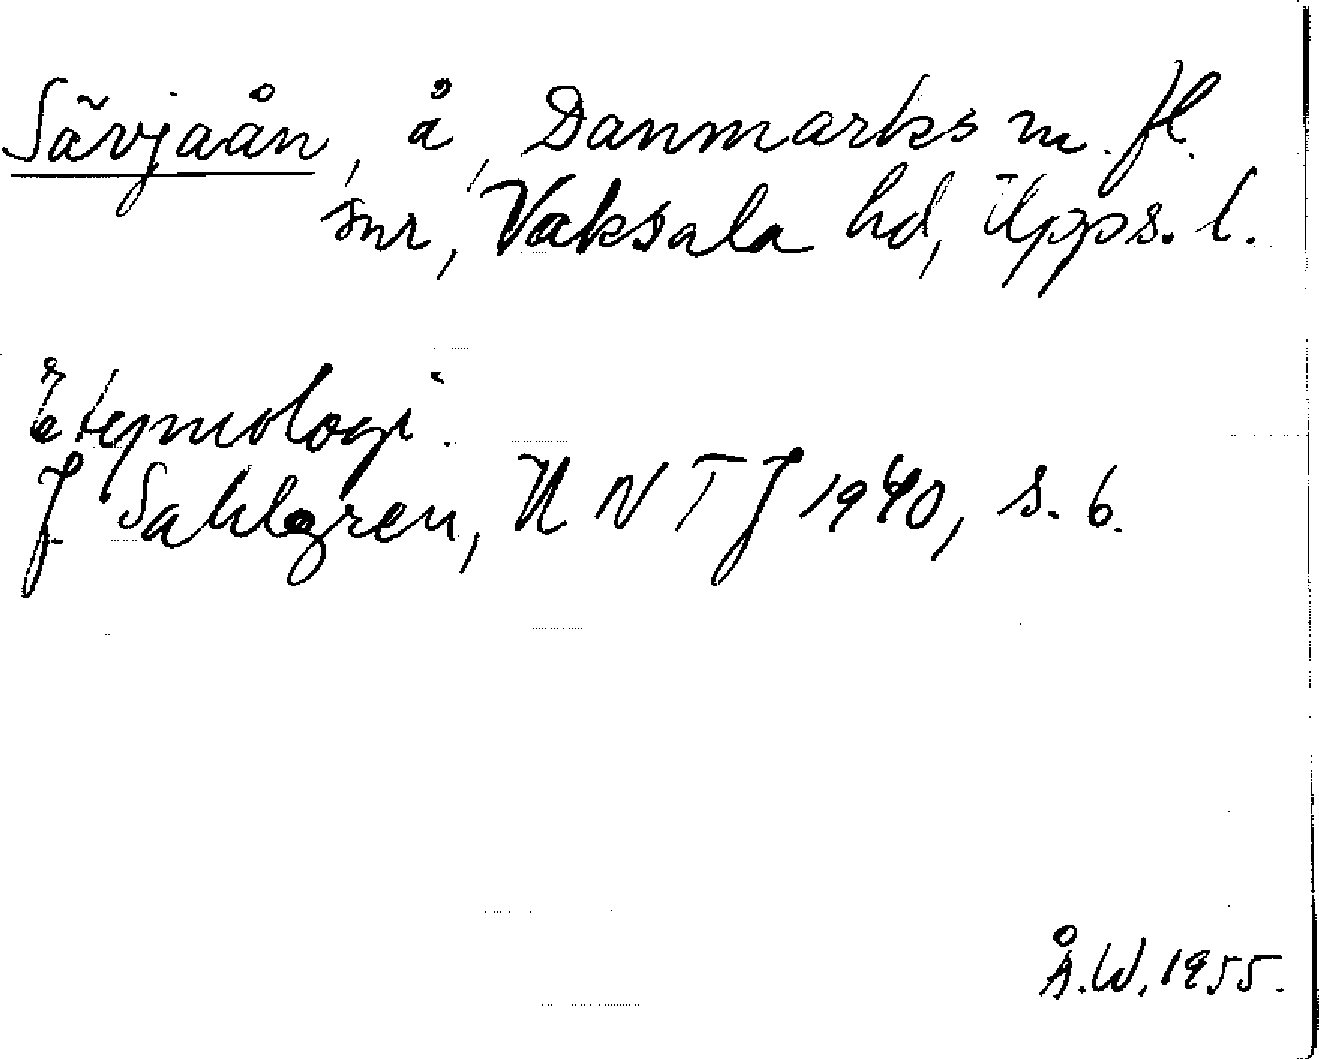 Sävjaån, å, Danmarks m. fl.
snr, Vaksala hd, Upps. l.
Etymologi.
J Sahlgren, UNTJ 1940, s. 6.
Å.W. 1955.